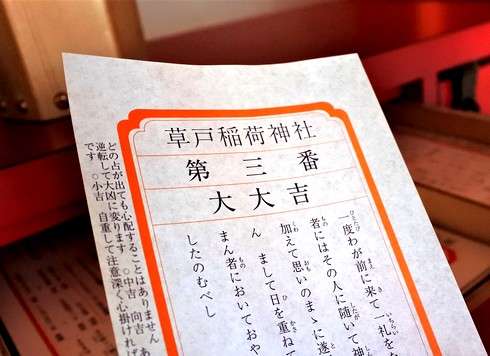 草戸稲荷神社
第三番
大大吉
一度わが前に来て一礼をな
者にはその人に随いて神
加えて思いのまゝに遂
ん　まして日を重ねて
まん者においておや
したのむべし
どの占が出ても心配することはありません　あ
逆転して大凶に変ります　○中吉　向吉
です　○小吉　自重して注意深く心掛ければ